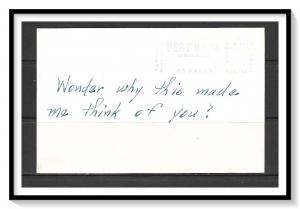 POST
Wonder why this made
me think of you?